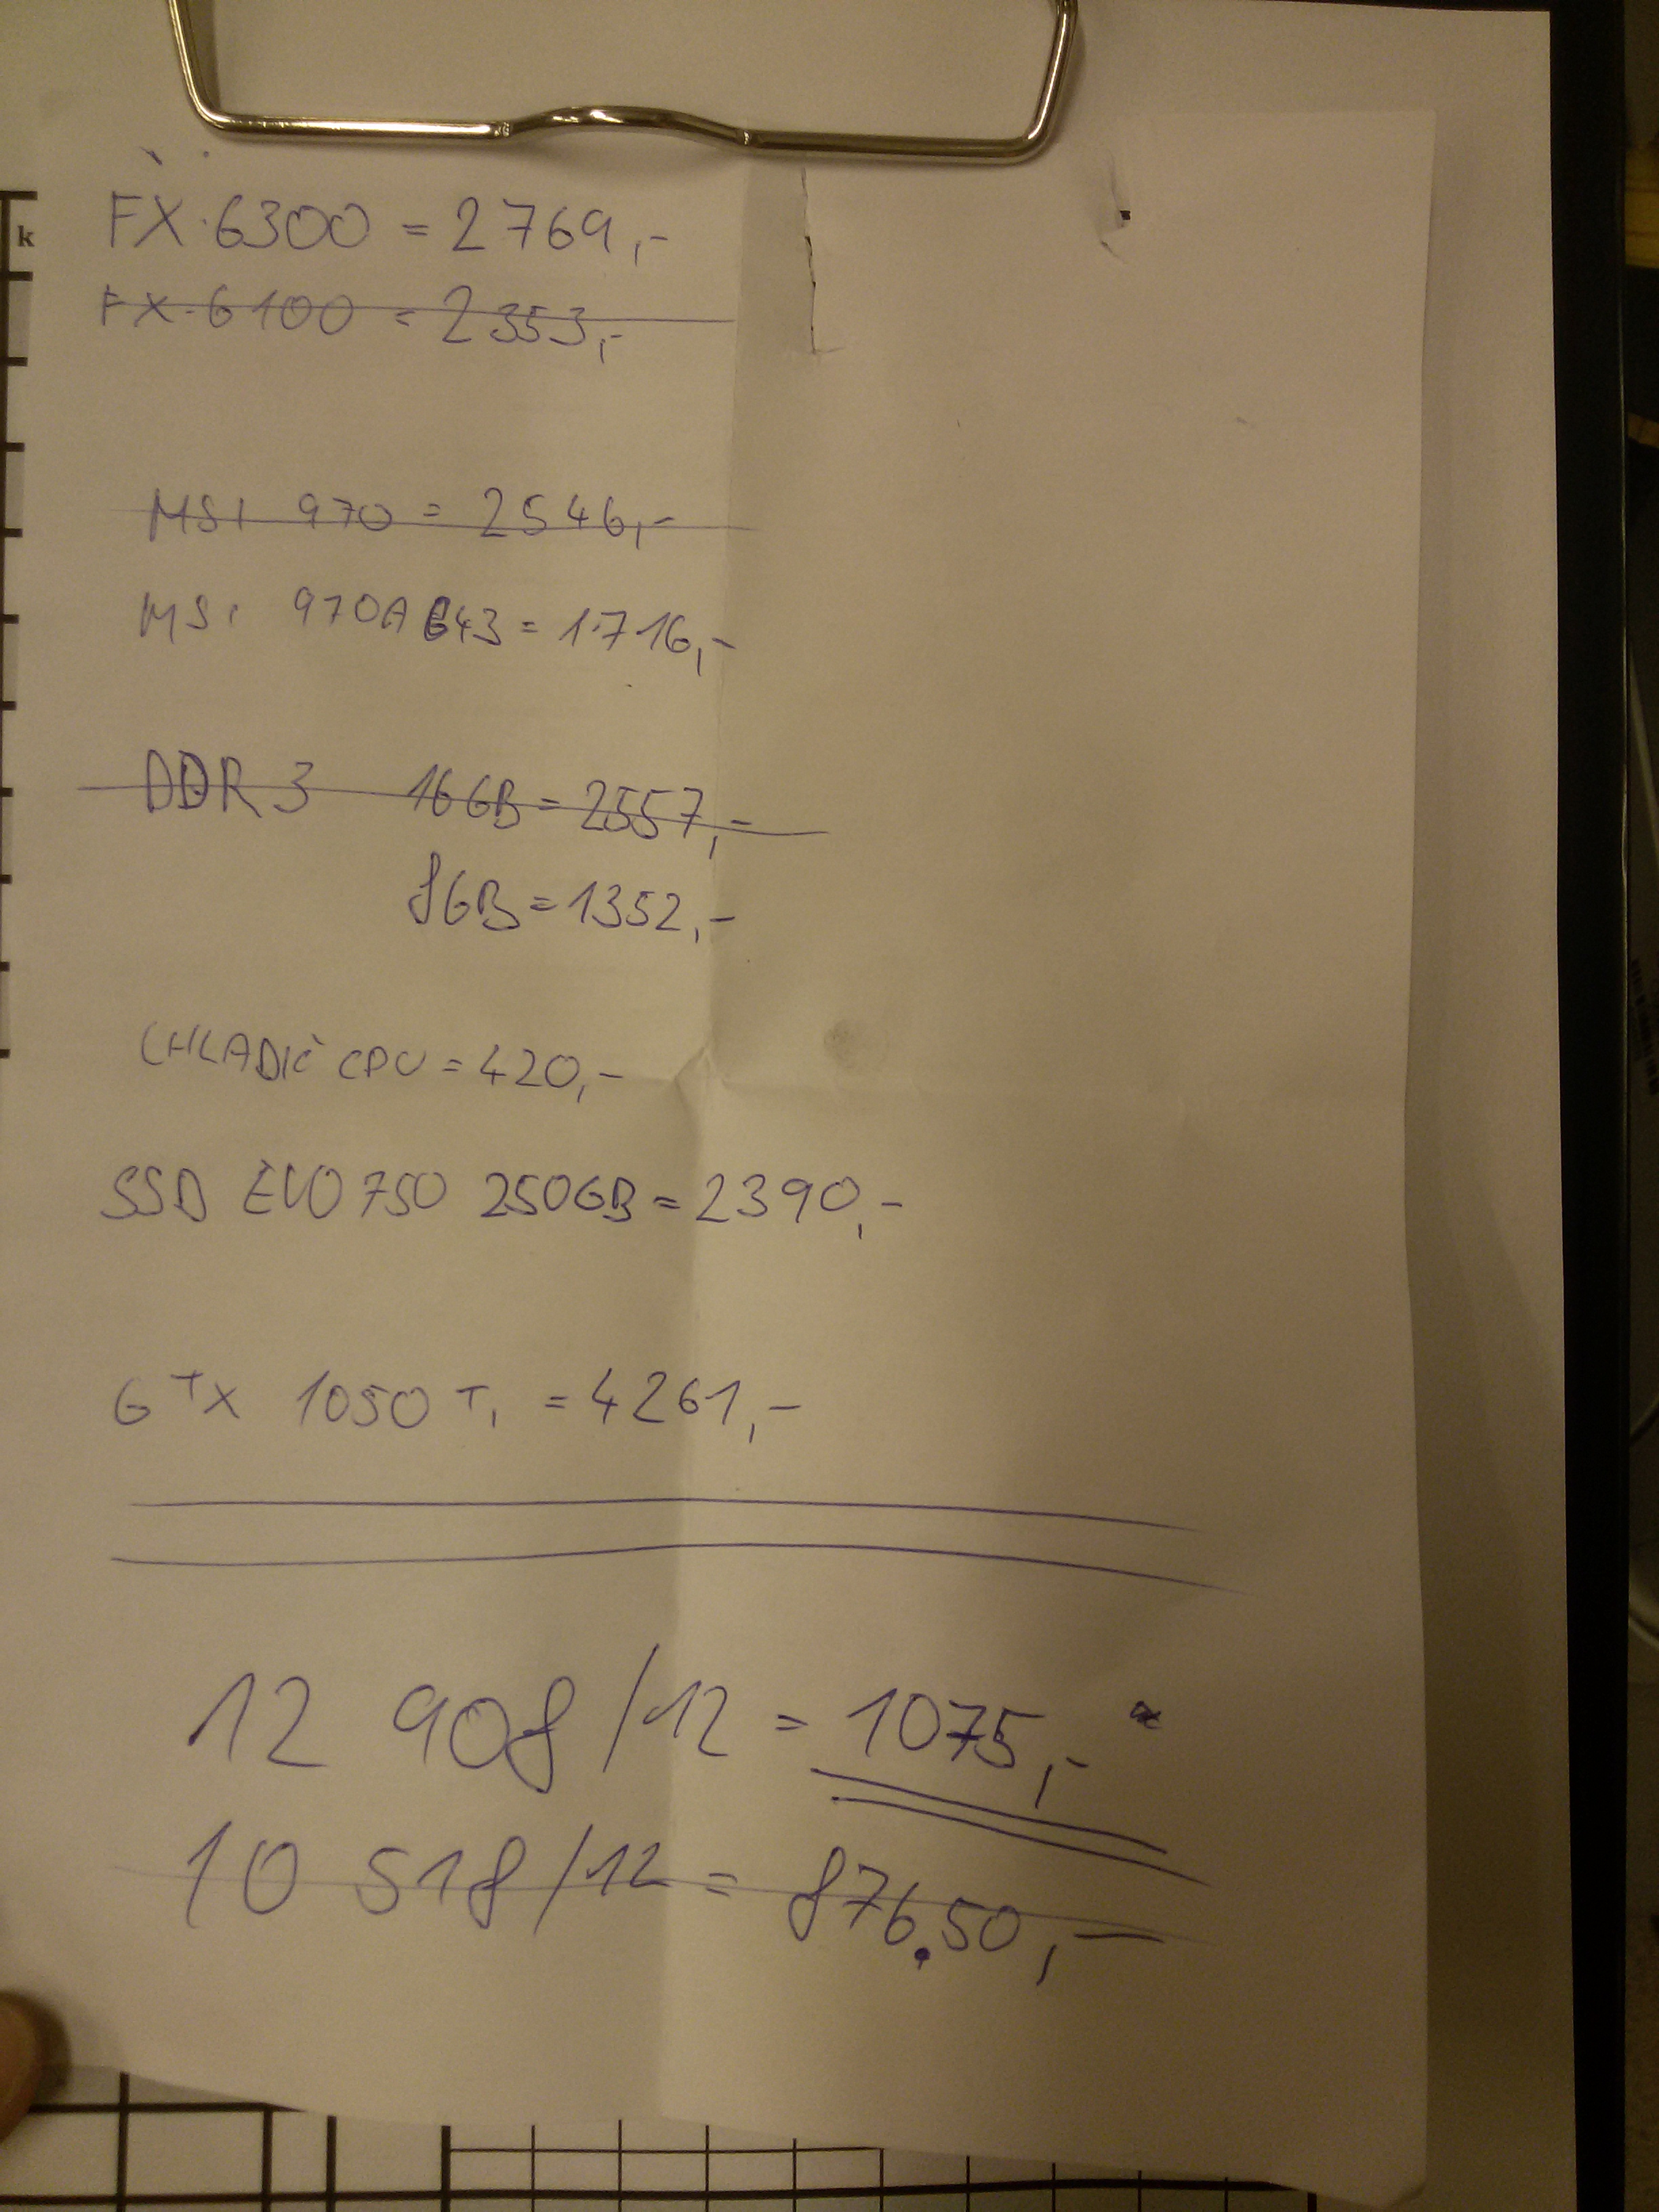 k
FX-6300 = 2769,-
FX-6100 = 2353,-
MSI 970 = 2546,-
MSi 970A G43 = 1716,-
DDR3 16GB = 2557,-
8GB = 1352,-
CHLADIČ CPU = 420,-
SSD EVO 750 250GB = 2390,-
GTX 1050 Ti = 4261,-
12 908/12 = 1075,-
10 518/12 = 876.50,-